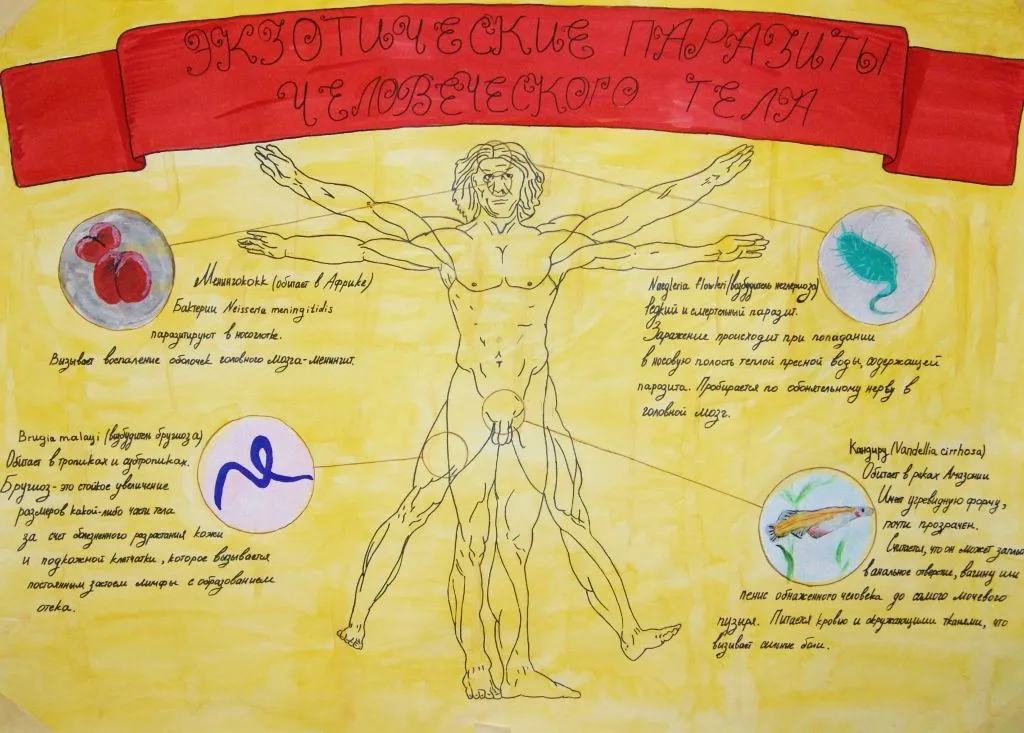 ЭКЗОТИЧЕСКИЕ ПАРАЗИТЫ
ЧЕЛОВЕЧЕСКОГО ТЕЛА
Менингококк (обитает в Африке)
Бактерии Neisseria meningitidis
паразитируют в носоглотке.
Вызывает воспаление оболочек головного мозга-менингит.
Naegleria fowleri (возбудитель неглериоза)
Редкий и смертельный паразит.
Заражение происходит при попадании
в носовую полость теплой пресной воды, содержащей
паразита. Пробирается по обонятельному нерву в
головной мозг.
Brugia malayi (возбудитель бругиоза)
Обитает в тропиках и субтропиках.
Бругиоз-это стойкое увеличение
размеров какой-либо части тела
за счет болезненного разрастания кожи
и подкожной клетчатки, которое вызывается
постоянным застоем лимфы с образованием
отека.
Кандиру (Vandellia cirrhosa)
Обитает в реках Амазонии
Имеет угревидную форму,
почти прозрачен.
Считается, что он может заплы
в анальное отверстие, вагину или
пенис обнаженного человека до самого мочевого
пузыря. Питается кровью и окружающими тканями, что
вызивает сильные боли.